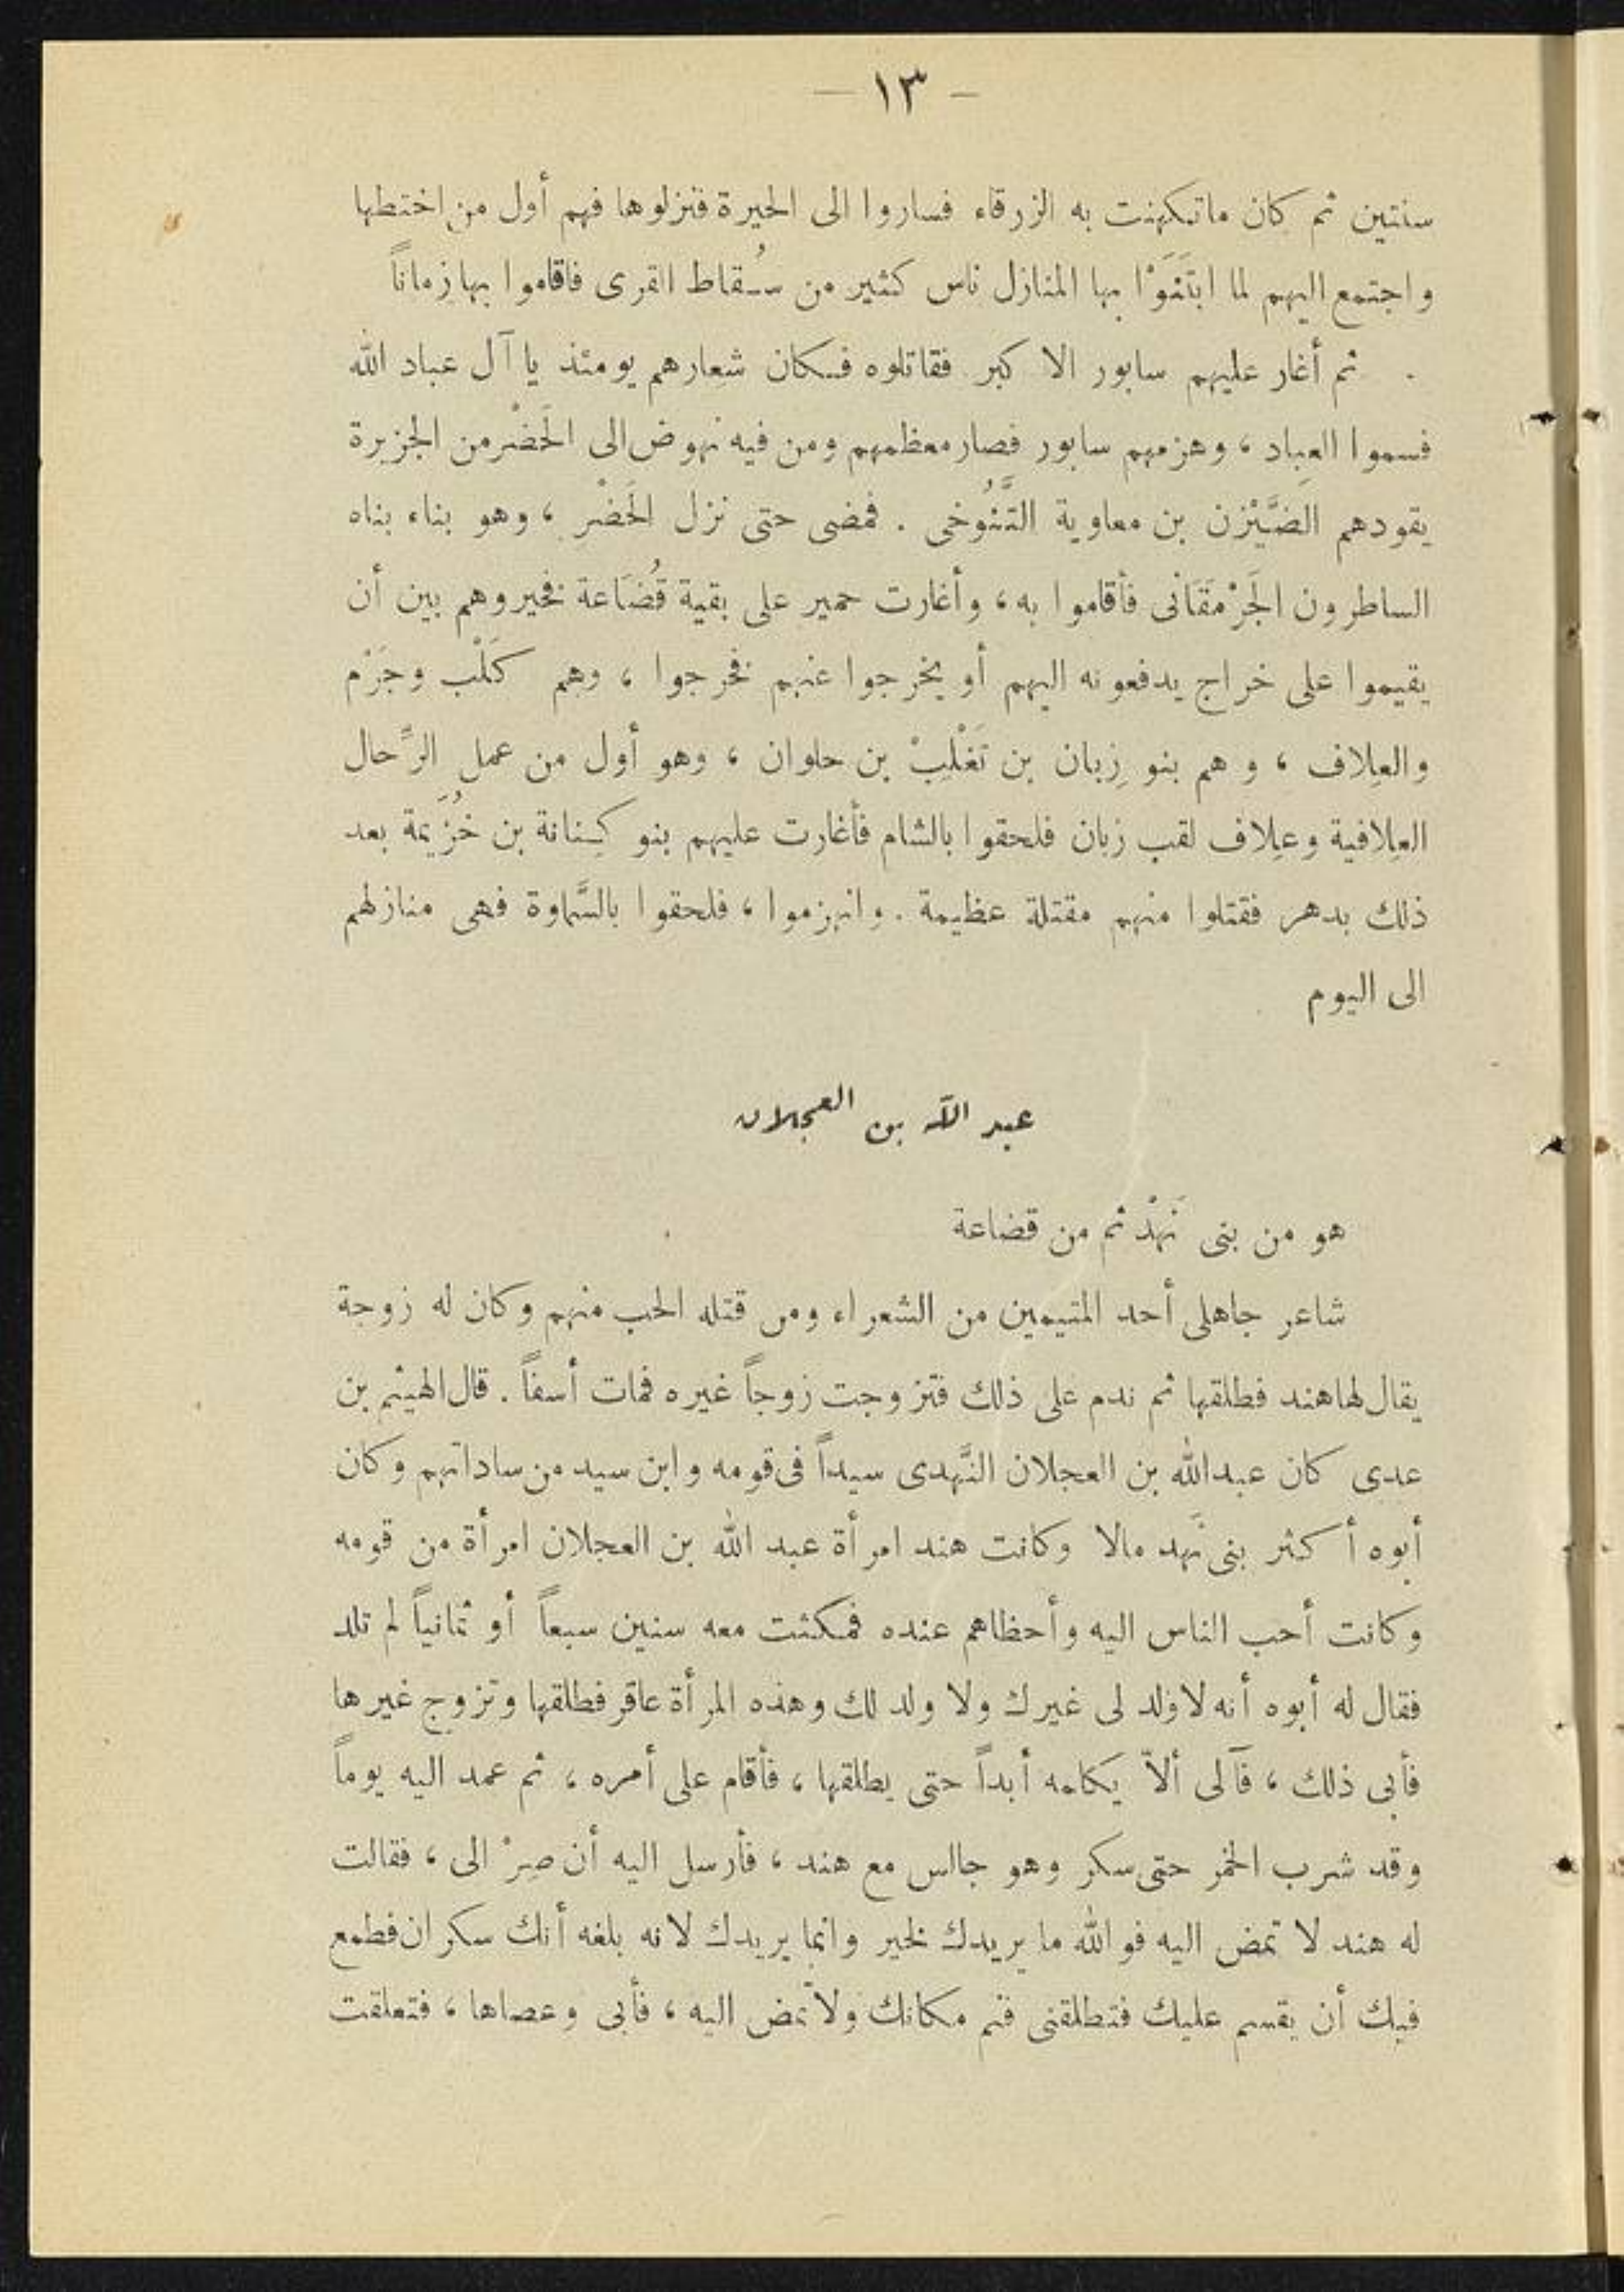 — ١٣ —
سنتين ثم كان ماتكهنت به الزرقاء فساروا الى الحيرة فنزلوها فهم أول من اختطها
واجتمع اليهم لما ابتَنَوْا بها المنازل ناس كثير من سُقاط القرى فاقاموا بها زماناً
ثم أغار عليهم سابور الاكبر فقاتلوه فكان شعارهم يومئذ يا آل عباد الله
فسموا العِباد ، وهزمهم سابور فصار معظمهم ومن فيه نهوض الى الحَضْر من الجزيرة
يقودهم الضَّيْزن بن معاوية التَّنُوخى . فمضى حتى نزل الحَضْر ، وهو بناء بناه
الساطرون الجَرْمَقَانى فأقاموا به ، وأغارت حمير على بقية قُضَاعة فخيروهم بين أن
يقيموا على خراج يدفعونه اليهم أو يخرجوا عنهم فخرجوا ، وهم كَلْب وجَرْم
والعِلاف ، وهم بنو زِبان بن تَغْلِبْ بن حلوان ، وهو أول من عمل الرِّحال
العِلافية وعِلاف لقب زبان فلحقوا بالشام فأغارت عليهم بنو كِنانة بن خُزَيمة بعد
ذلك بدهر فقتلوا منهم مقتلة عظيمة . وانهزموا ، فلحقوا بالسَّماوة فهى منازلهم
الى اليوم
عبد الله بن العجلان
هو من بنى نَهْد ثم من قضاعة
شاعر جاهلى أحد المتيمين من الشعراء ومن قتله الحب منهم وكان له زوجة
يقال لها هند فطلقها ثم ندم على ذلك فتزوجت زوجاً غيره فمات أسفاً . قال الهيثم بن
عدى كان عبد الله بن العجلان النَّهدى سيداً فى قومه وابن سيد من ساداتهم وكان
أبوه أكثر بنى نَهد مالا وكانت هند امرأة عبد الله بن العجلان امرأة من قومه
وكانت أحب الناس اليه وأحظاهم عنده فمكثت معه سنين سبعاً أو ثمانياً لم تلد
فقال له أبوه أنه لا ولد لى غيرك ولا ولد لك وهذه المرأة عاقر فطلقها وتزوج غيرها
فأبى ذلك ، فآلى ألاّ يكلمه أبداً حتى يطلقها ، فأقام على أمره ، ثم عمد اليه يوماً
وقد شرب الخمر حتى سكر وهو جالس مع هند ، فأرسل اليه أن صِرْ الى ، فقالت
له هند لا تمض اليه فو الله ما يريدك لخير وانما يريدك لانه بلغه أنك سكران فطمع
فيك أن يقسم عليك فتطلقنى فنم مكانك ولا تمض اليه ، فأبى وعصاها ، فتعلقت